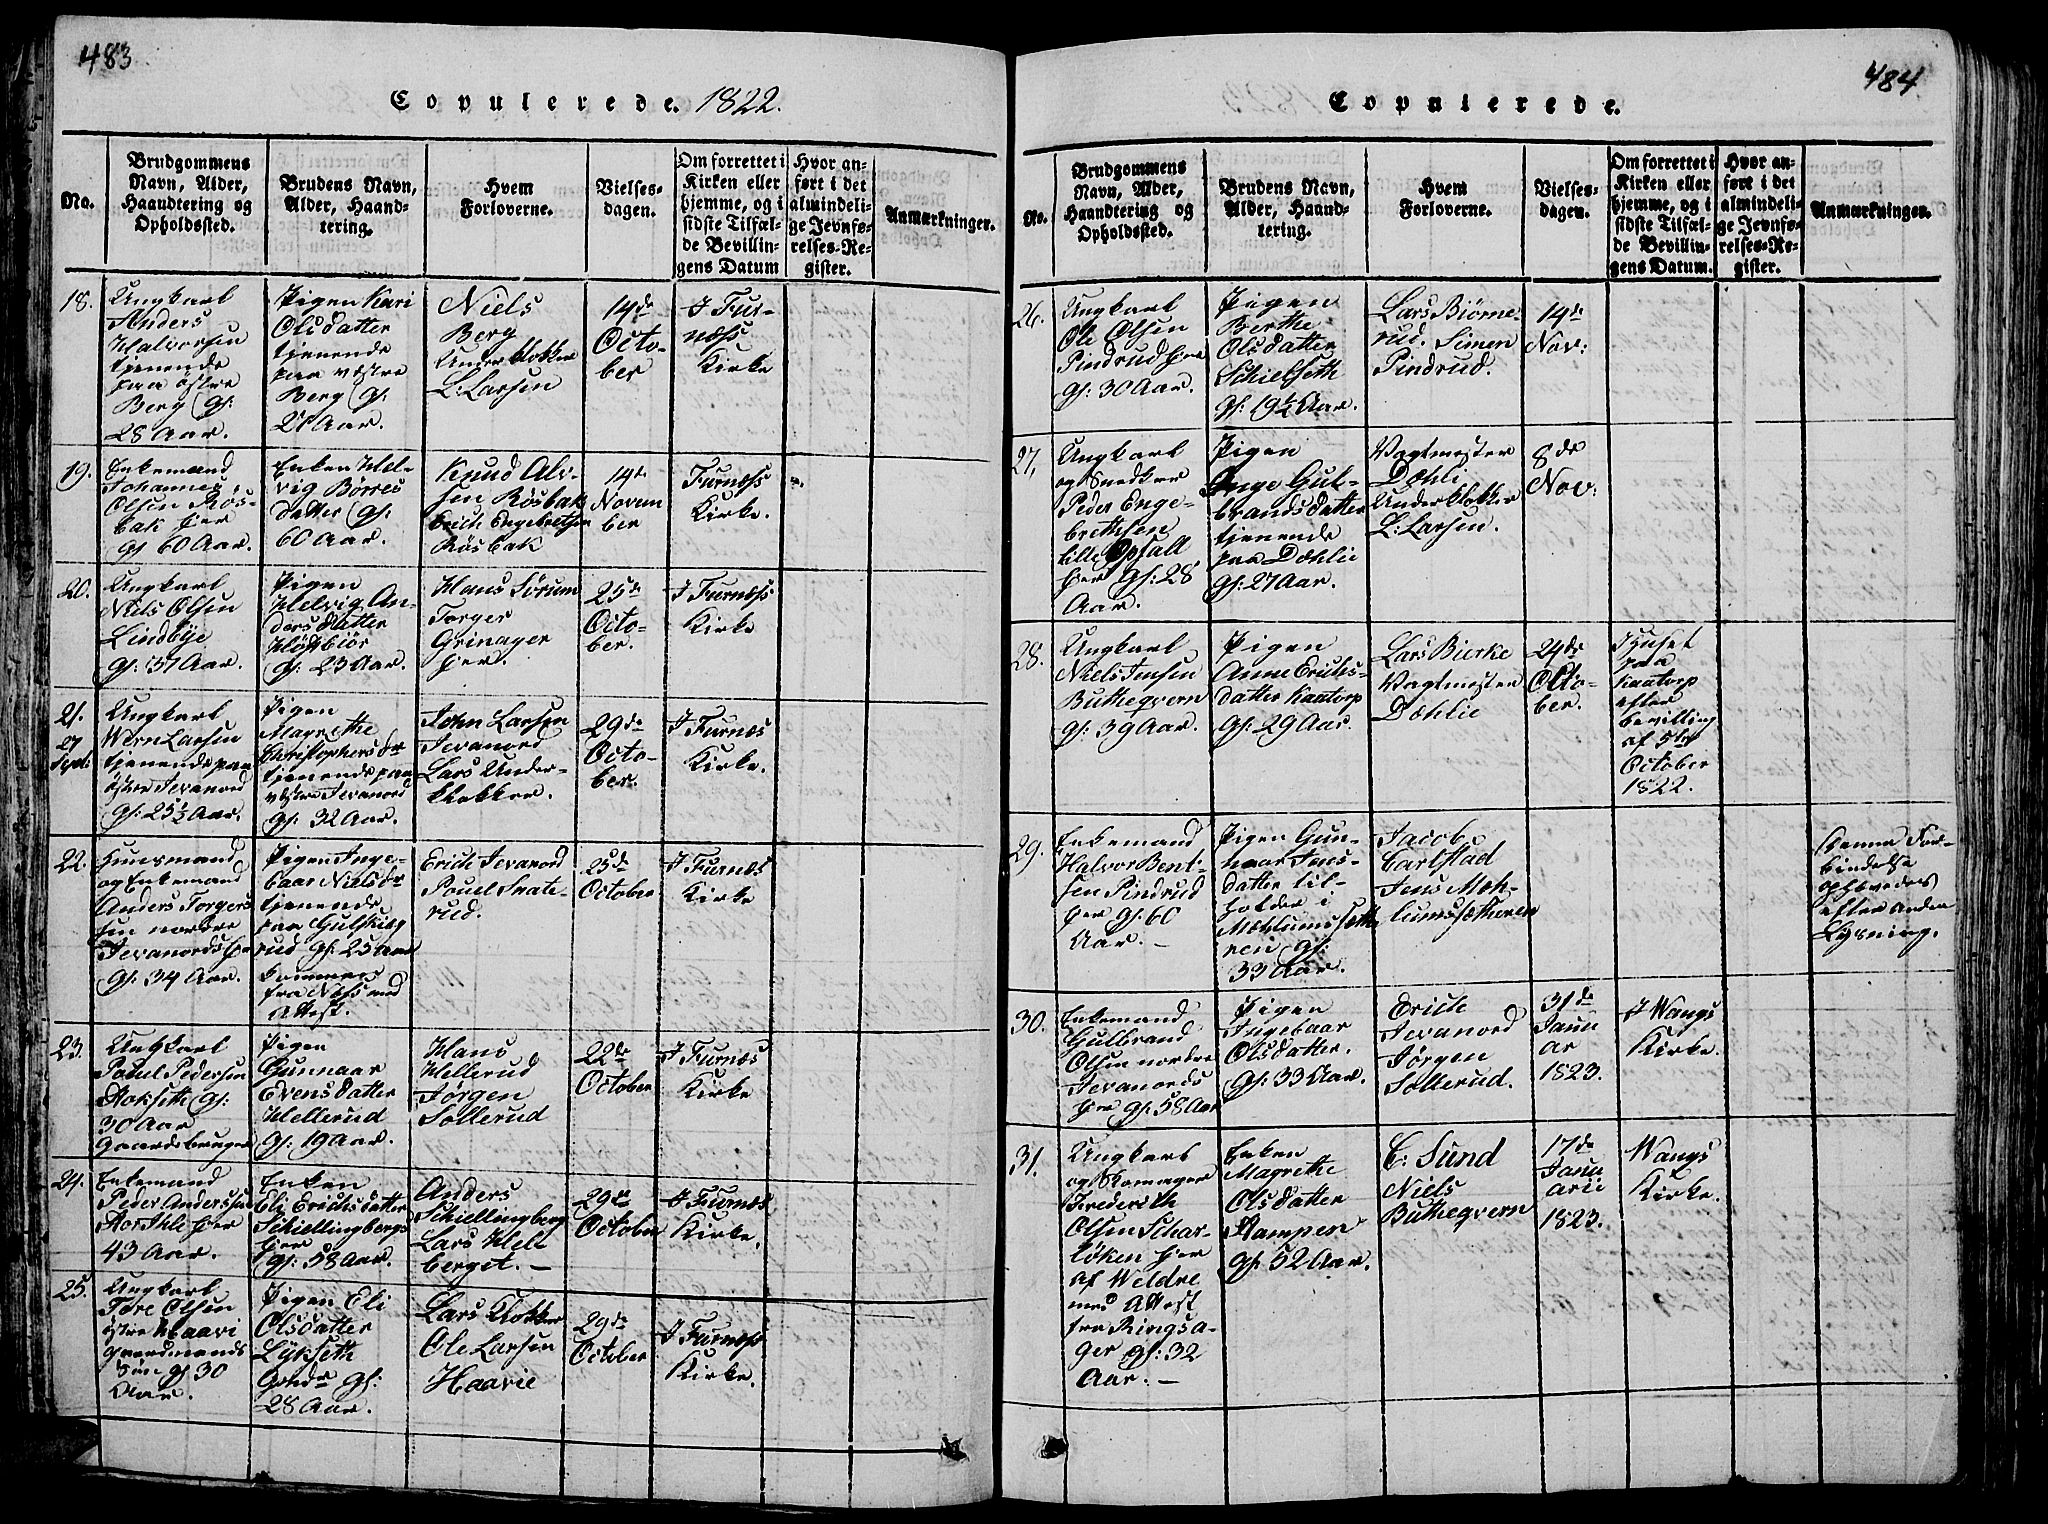 483
Copulerede. 1822.
No.
Brudgommens Navn, Alder, Haandtering og Opholdssted.
Brudens Navn, Alder, Haandtering.
Hvem Forloverne.
Vielsesdagen.
Om forrettet i Kirken eller hjemme, og i sidste Tilfælde Bevillingens Datum
Hvor anført i det almindelige Jevnførelses-Register.
Anmærkninger.
18.
Ungkarl
Anders
Halvorsen
tjenende
paa östre
Berg gl:
28 Aar.
Pigen Kari
Olsdatter
tjenende
paa væstre
Berg gl:
21 Aar.
Niels
Berg
Underklokker
L: Larsen
14de
Octo-
ber
I Fur-
næss
Kirke
19.
Enkemand
Johannes
Olsen Rös-
bak her
gl 60 Aar.
Enken Hel-
vig Börres
datter gl:
60 Aar.
Knud Alv-
sen Rösbak
Erich Engebretsen
Rösbak
14de
Novem
ber
Furnæss
Kirke.
20.
Ungkarl
Niels Olsen
Lindbye
gl: 37 Aar.
Pigen
Helvig An-
dersdatter
gl: 23 Aar.
Hans Sörum
Torger
Grinager
her.
25de
Octo-
ber.
I Furnæss
Kirke
21.
27
Ungkarl
Larsen
tjenende paa
östre Jevanord
gl: 25½ Aar.
Pigen
Magrethe
Christophersdr
tjenende paa
væstre Jevanord
gl: 32 Aar.
John Larsen
Jevanord
Lars Under-
klokker.
29de
Octo-
ber.
I Furnæs
Kirke.
22.
Huusmand
og Enkemand
Anders Torgers
sen nordre
Jevanords
gl: 34 Aar.
Pigen Inge-
baar Nielsdr
tjenende
paa
rud gl: 25 Aar
kommen
fra Næss med
Attest.
Erich Jevanord
Pouel Snate-
rud.
25de
October
I Furnæs
Kirke
23.
Ungkarl
Poul Pedersen
Stokseth gl:
30 Aar
Gaardebruger
Pigen
Gunnaar
Evensdatter
Hellerud
gl: 19 Aar.
Hans
Hellerud
Jörgen
Sollerud
22de
October
I Furnæs
Kirke
24.
Enkemand
Peder Anderssen
her
43 Aar.
Enken
Eli Erichsdatter
Schiellingbergs
her
gl: 58 Aar.
Anders
Schiellingberg
Lars Hel
berget.
29de
October
I Furnæs
Kirke.
25.
Ungkarl
Tore Olsen
östre Haavi
gaardmands
Sön gl 30
Aar.
Pigen Eli
Olsdatter
Lykseth
gl:
28 Aar.
Lars Klokker
Ole Larsen
Haavie
29de
October
I Furnæss
Kirke.
484
Copulerede.
No.
Brudgommens Navn, Alder, Haandtering og Opholdssted.
Brudens Navn, Alder, Haandtering.
Hvem Forloverne.
Vielsesdagen.
Om forrettet i Kirken eller hjemme, og i sidste Tilfælde Bevillingens Datum.
Hvor anført i det almindelige Jevnførelses-Register.
Anmærkninger.
26.
Ungkarl
Ole Olsen
Pindrud her
gl: 30 Aar.
Pigen
Berthe
Olsdatter
Schielseth
gl: 19½ Aar.
Lars Biörne-
rud. Simen
Pindrud.
14de
Nov:
27.
Ungkarl
og Snedker
Peder Enge-
brethsen
lille
her gl: 28
Aar.
Pigen
Inge Gul-
brandsdatter
tjenende
paa Dæhlie
gl: 27 Aar.
Vagtmester
Dæhli
Underklokker
L: Larsen.
8de
Nov:
28.
Ungkarl
Niels Jensen
Butheqvern
gl: 39 Aar.
Pigen
Anne Erichs-
datter Kaatorp
gl: 29 Aar.
Lars Bierke
Vagtmester
Dæhlie
24de
Octo-
ber.
I Huset
paa
Kaatorp
efter
bevilling
af 5te
October
1822.
29.
Enkemand
Halvor Bent-
sen Pindrud
her gl: 60
Aar.
Pigen Gun-
haar Jens-
datter til-
holder i
gl:
33 Aar.
Jacob
Carlstad
Jens Moh-
lumssætheren
Denne For-
bindelse
ophævedes
efter anden
Lysning.
30.
Enkemand
Gulbrand
Olsen nordre
Jevanords
her gl: 58 Aar
Pigen
Ingebaar
Olsdatter.
gl: 33 Aar.
Erich
Jevanord
Jörgen
Sollerud.
31de
Janu
ar
1823.
I Wangs
Kirke.
31.
Ungkarl
og
Frederich
Olsen Schar-
löken her
af Weldre
med Attest
fra Ringsa-
ger gl: 32
Aar.
Enken
Magrethe
Olsdatter
Stampen
gl: 52 Aar.
C: Sund
Niels
Butheqvern
17de
Janu
arii
1823.
Wangs
Kirke.